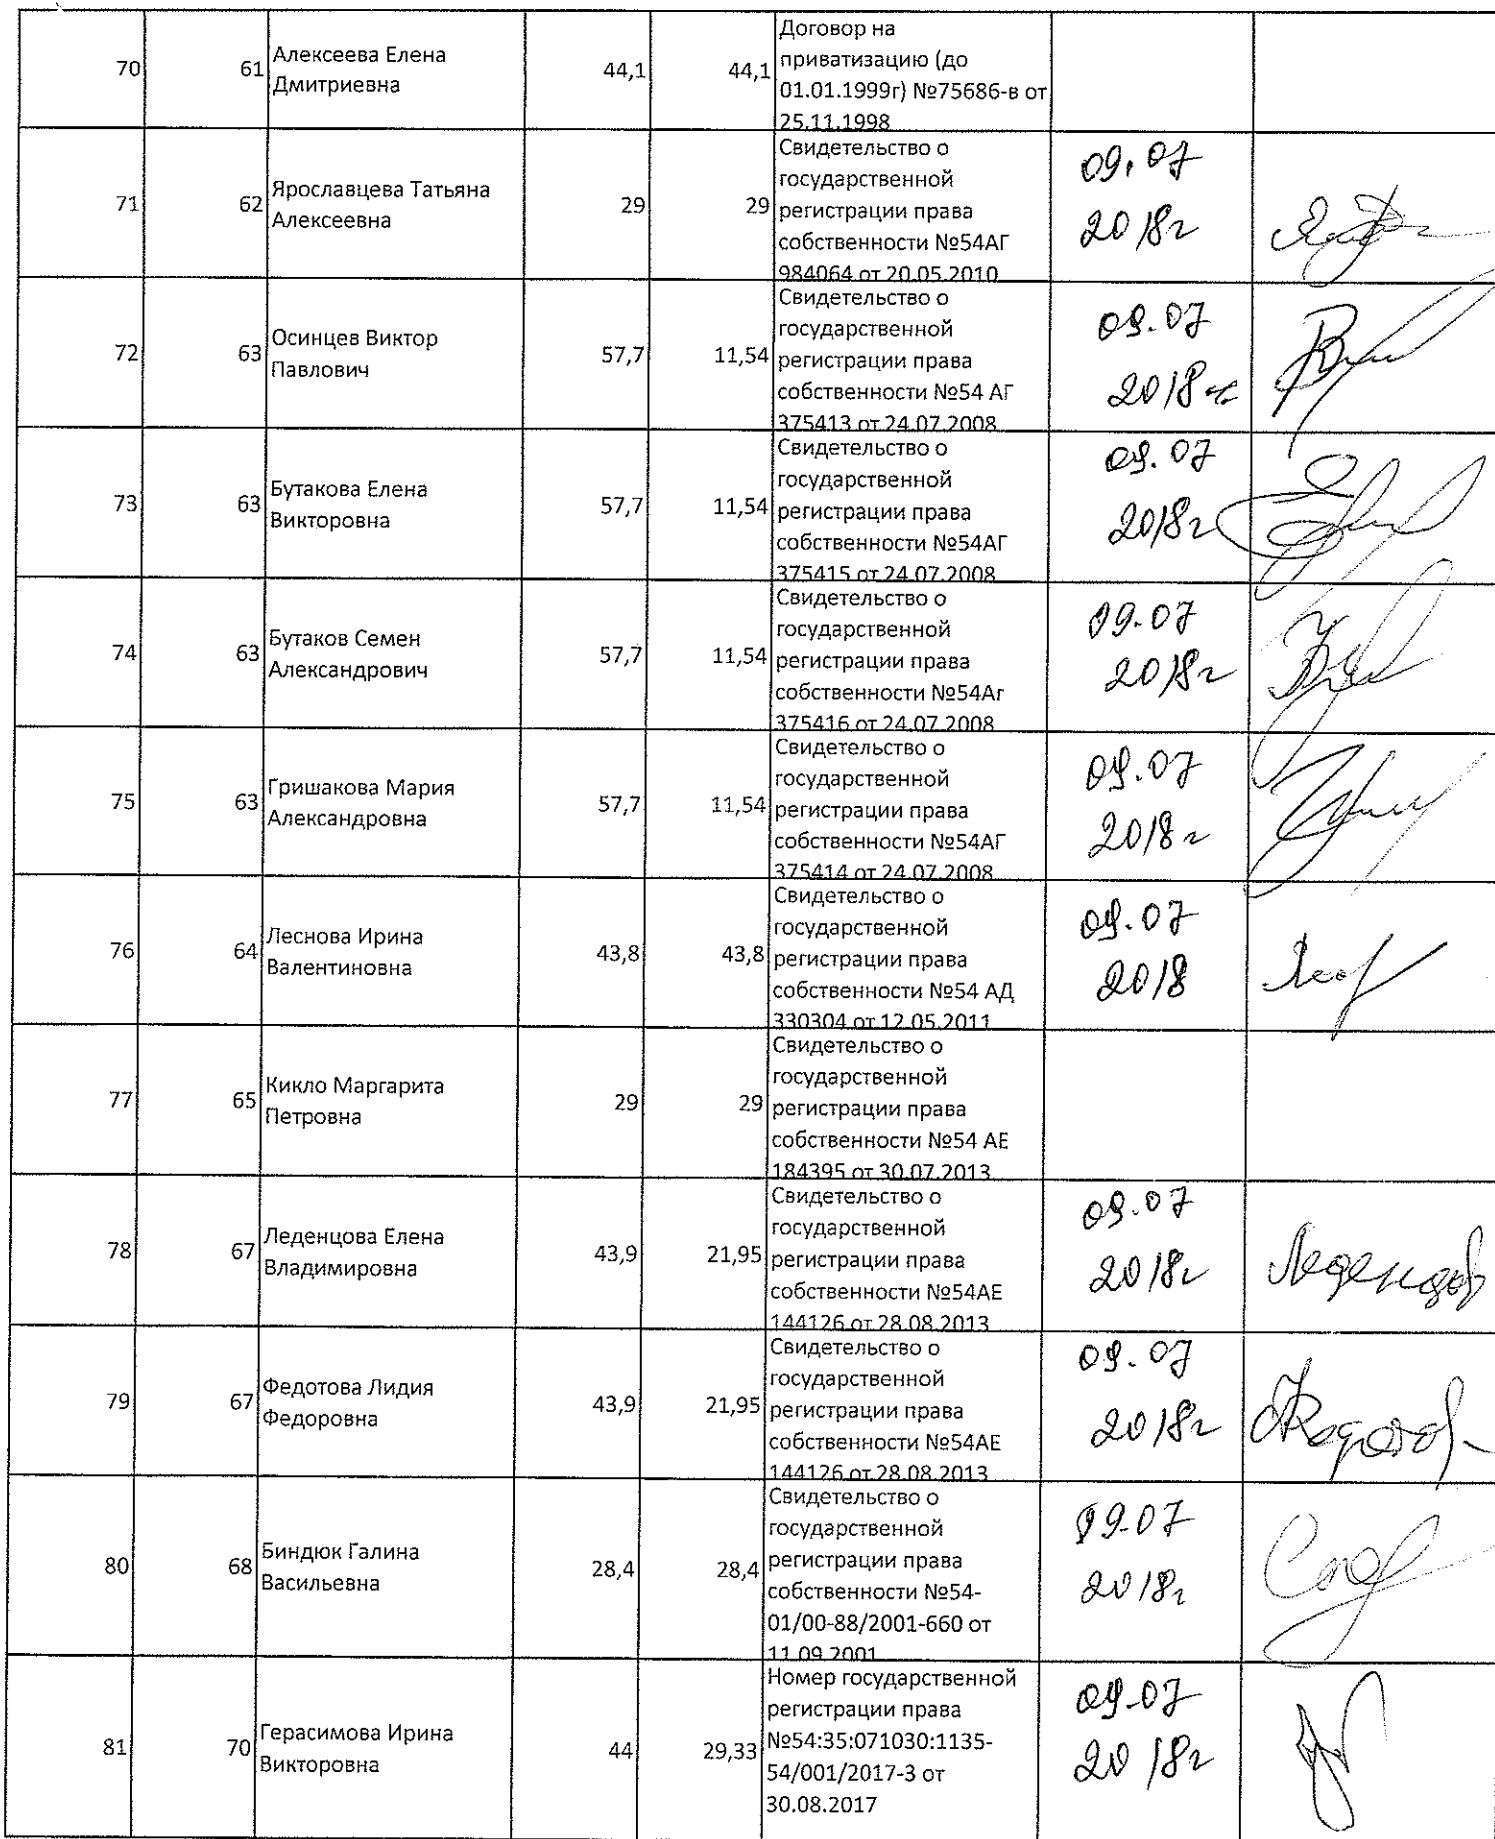 70 61 Алексеева Елена Дмитриевна 44,1 44,1 Договор на
приватизацию (до
01.01.1999г) №75686-в от
25.11.1998
71 62 Ярославцева Татьяна Алексеевна 29 29 Свидетельство о
государственной
регистрации права
собственности №54АГ
984064 от 20.05.2010
09.07
2018г
72 63 Осинцев Виктор Павлович 57,7 11,54 Свидетельство о
государственной
регистрации права
собственности №54 АГ
375413 от 24.07.2008
09.07
2018г
73 63 Бутакова Елена Викторовна 57,7 11,54 Свидетельство о
государственной
регистрации права
собственности №54АГ
375415 от 24.07.2008
09.07
2018г
74 63 Бутаков Семен Александрович 57,7 11,54 Свидетельство о
государственной
регистрации права
собственности №54Аг
375416 от 24.07.2008
09.07
2018г
75 63 Гришакова Мария Александровна 57,7 11,54 Свидетельство о
государственной
регистрации права
собственности №54АГ
375414 от 24.07.2008
09.07
2018г
76 64 Леснова Ирина Валентиновна 43,8 43,8 Свидетельство о
государственной
регистрации права
собственности №54 АД
330304 от 12.05.2011
09.07
2018
77 65 Кикло Маргарита Петровна 29 29 Свидетельство о
государственной
регистрации права
собственности №54 АЕ
184395 от 30.07.2013
78 67 Леденцова Елена Владимировна 43,9 21,95 Свидетельство о
государственной
регистрации права
собственности №54АЕ
144126 от 28.08.2013
09.07
2018г
79 67 Федотова Лидия Федоровна 43,9 21,95 Свидетельство о
государственной
регистрации права
собственности №54АЕ
144126 от 28.08.2013
09.07
2018г
80 68 Биндюк Галина Васильевна 28,4 28,4 Свидетельство о
государственной
регистрации права
собственности №54-
01/00-88/2001-660 от
11.09.2001
09.07
2018г
81 70 Герасимова Ирина Викторовна 44 29,33 Номер государственной
регистрации права
№54:35:071030:1135-
54/001/2017-3 от
30.08.2017
09.07
2018г